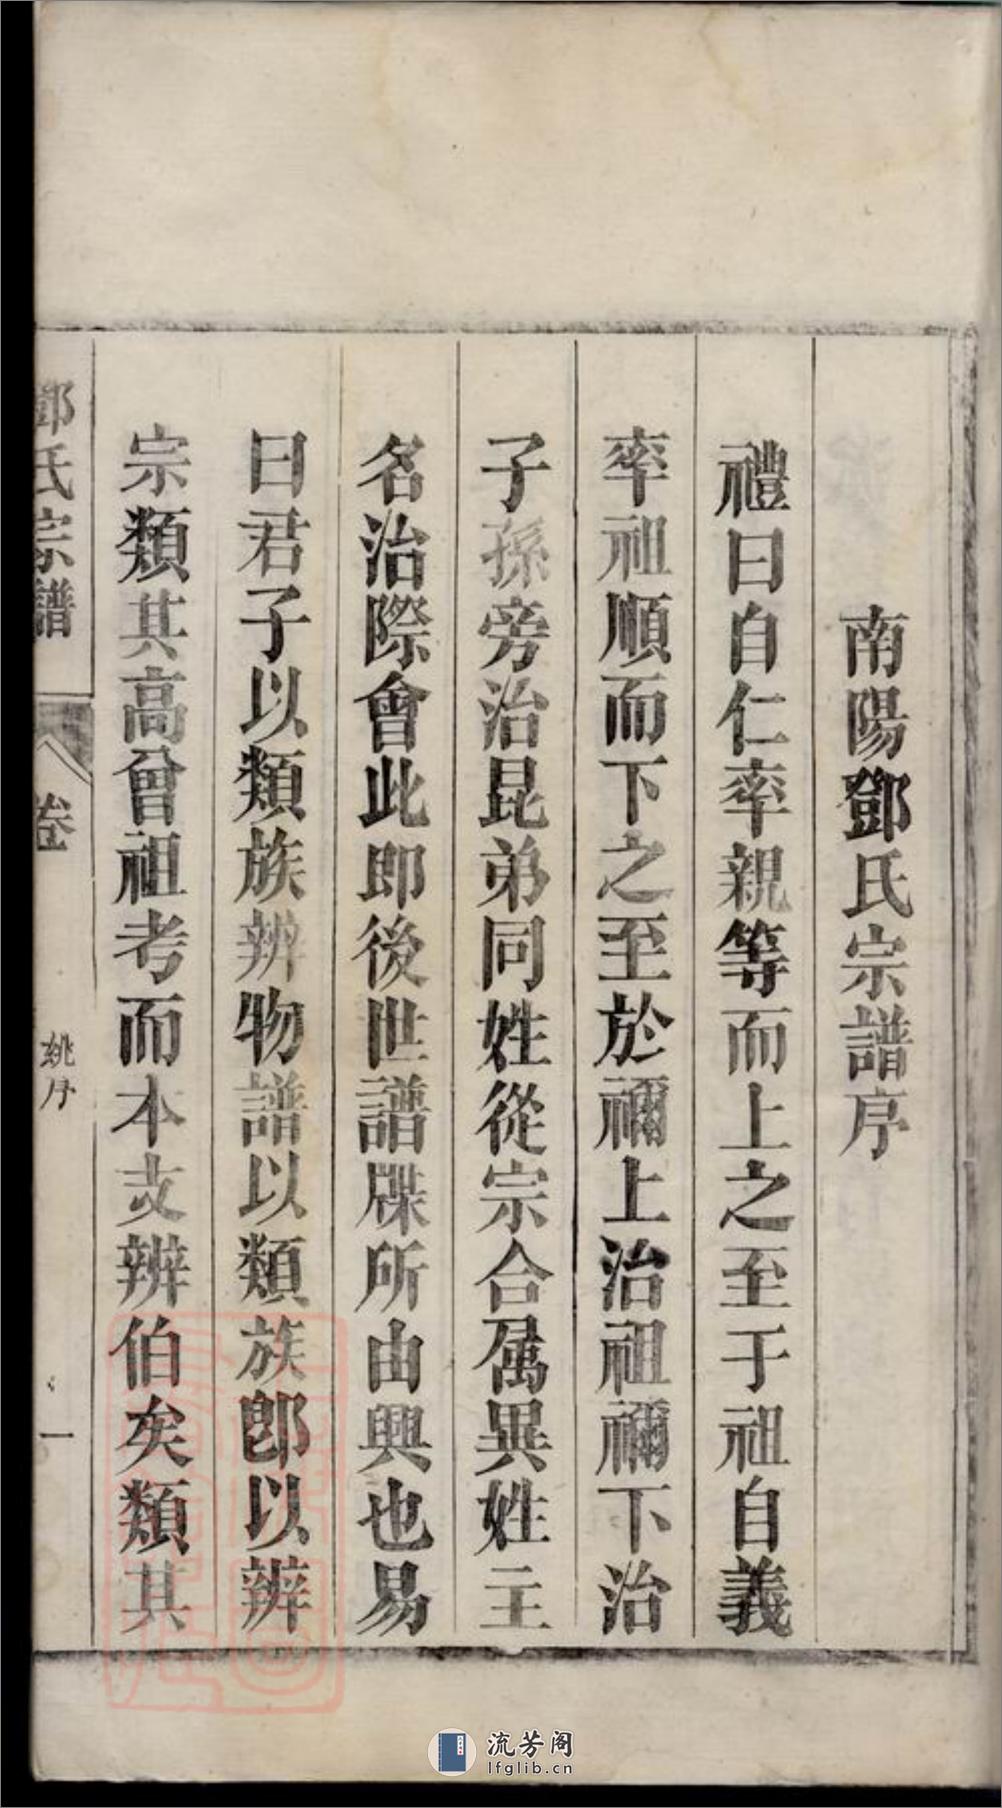 南陽鄧氏宗譜序
禮曰自仁率親等而上之至于祖自義
率祖順而下之至於禰上治祖禰下治
子孫旁治昆弟同姓從宗合属異姓主
名治際會此即後世譜牒所由興也易
曰君子以類族辨物譜以類族卽以辨
宗類其高曾祖考而本支辨伯矣類其
鄧氏宗譜
卷
姚序
一
流芳阁
lfglib.cn